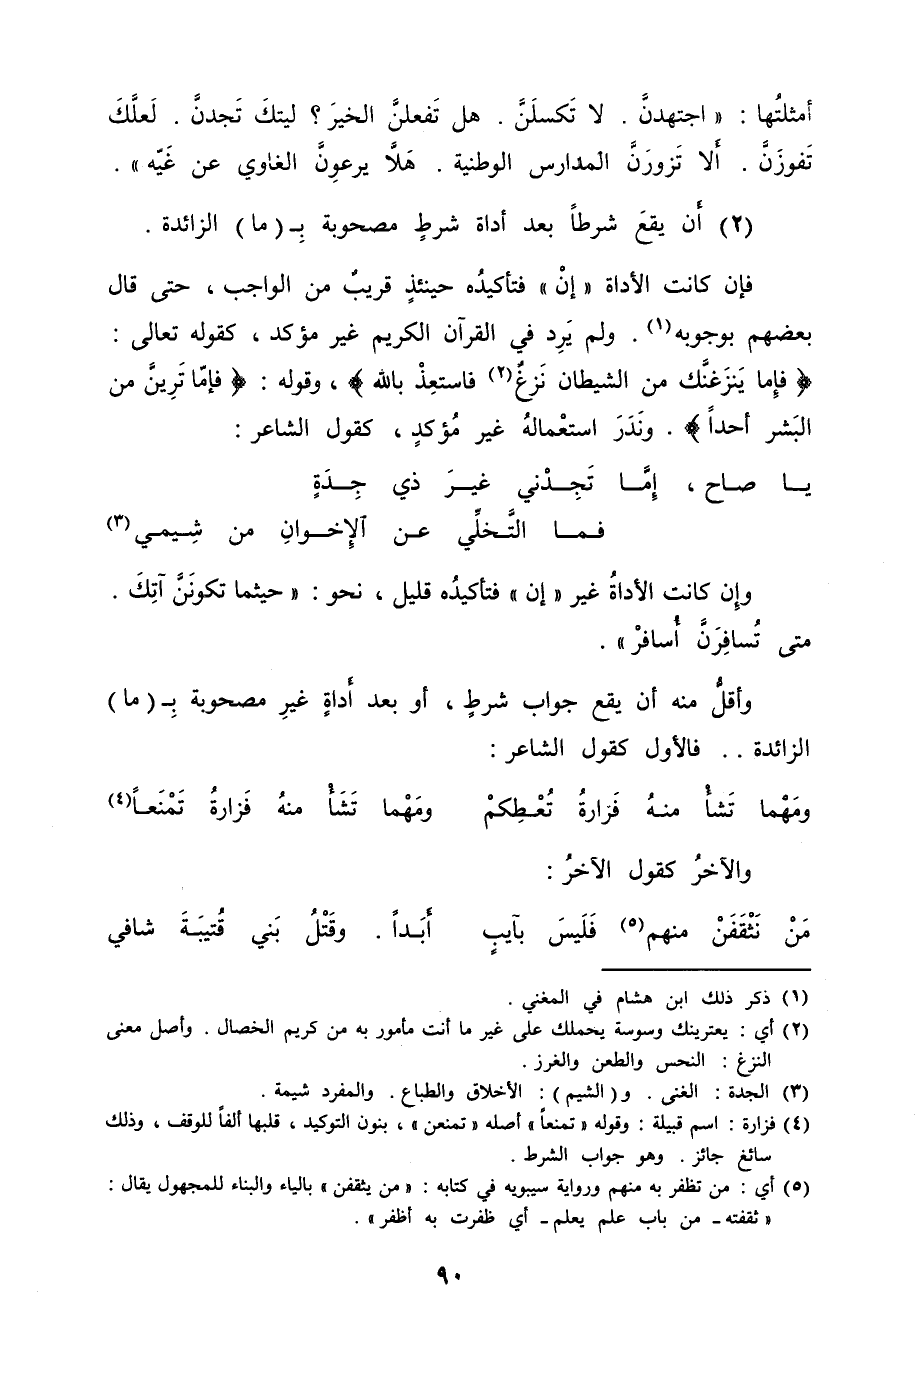 أمثلتُها : « اجتهدنَّ . لا تَكسلَنَّ . هل تَفعلنَّ الخيرَ ؟ ليتكَ تَجدنَّ . لَعلَّكَ
تَفوزَنَّ . أَلا تَزورَنَّ المدارس الوطنية . هَلاَّ يرعوِنَّ الغاوي عن غَيّه » .
(٢) أَن يقعَ شرطاً بعد أداة شرطٍ مصحوبة بِـ ( ما ) الزائدة .
فإن كانت الأداة « إنْ » فتأكيدُه حينئذٍ قريبٌ من الواجب ، حتى قال
بعضهم بوجوبه(١) . ولم يَرِد في القرآن الكريم غير مؤكد ، كقوله تعالى :
﴿ فإِما يَنزَغنَّك من الشيطان نَزغٌ(٢) فاستعِذْ بالله ﴾ ، وقوله : ﴿ فإمّا تَرينَّ من
البَشر أحداً ﴾ . ونَدَرَ استعْمالهُ غير مُؤكدٍ ، كقول الشاعر :
يـا صـاح ، إمَّـا تَجِـدْني غيـرَ ذي جِـدَةٍ
فـمـا التَّـخلِّي عـن ٱلإِخـوانِ من شِـيمـي(٣)
وإِن كانت الأداةُ غير « إن » فتأكيدُه قليل ، نحو : « حيثما تكونَنَّ آتِكَ .
متى تُسافِرَنَّ أُسافرْ » .
وأقلُّ منه أن يقع جواب شرطٍ ، أو بعد أَداةٍ غيرِ مصحوبة بِـ ( ما )
الزائدة . . فالأول كقول الشاعر :
ومَهْما تَشأْ منـهُ فَزارةُ تُعْـطِكمْ ومَهْما تَشَأْ منهُ فَزارةُ تَمْنَعـاً(٤)
والآخرُ كقول الآخرُ :
مَنْ نَثْقَفَنْ منهم(٥) فَلَيسَ بآيبٍ أَبَـداً . وقَتْلُ بَني قُتيبَـةَ شافي
(١) ذكر ذلك ابن هشام في المغني .
(٢) أي : يعترينك وسوسة يحملك على غير ما أنت مأمور به من كريم الخصال . وأصل معنى
النزغ : النحس والطعن والغرز .
(٣) الجدة : الغنى . و ( الشيم ) : الأخلاق والطباع . والمفرد شيمة .
(٤) فزارة : اسم قبيلة : وقوله « تمنعاً » أصله « تمنعن » ، بنون التوكيد ، قلبها ألفاً للوقف ، وذلك
سائغ جائز . وهو جواب الشرط .
(٥) أي : من تظفر به منهم ورواية سيبويه في كتابه : « من يثقفن » بالياء والبناء للمجهول يقال :
« ثقفته ـ من باب علم يعلم ـ أي ظفرت به أظفر » .
٩٠